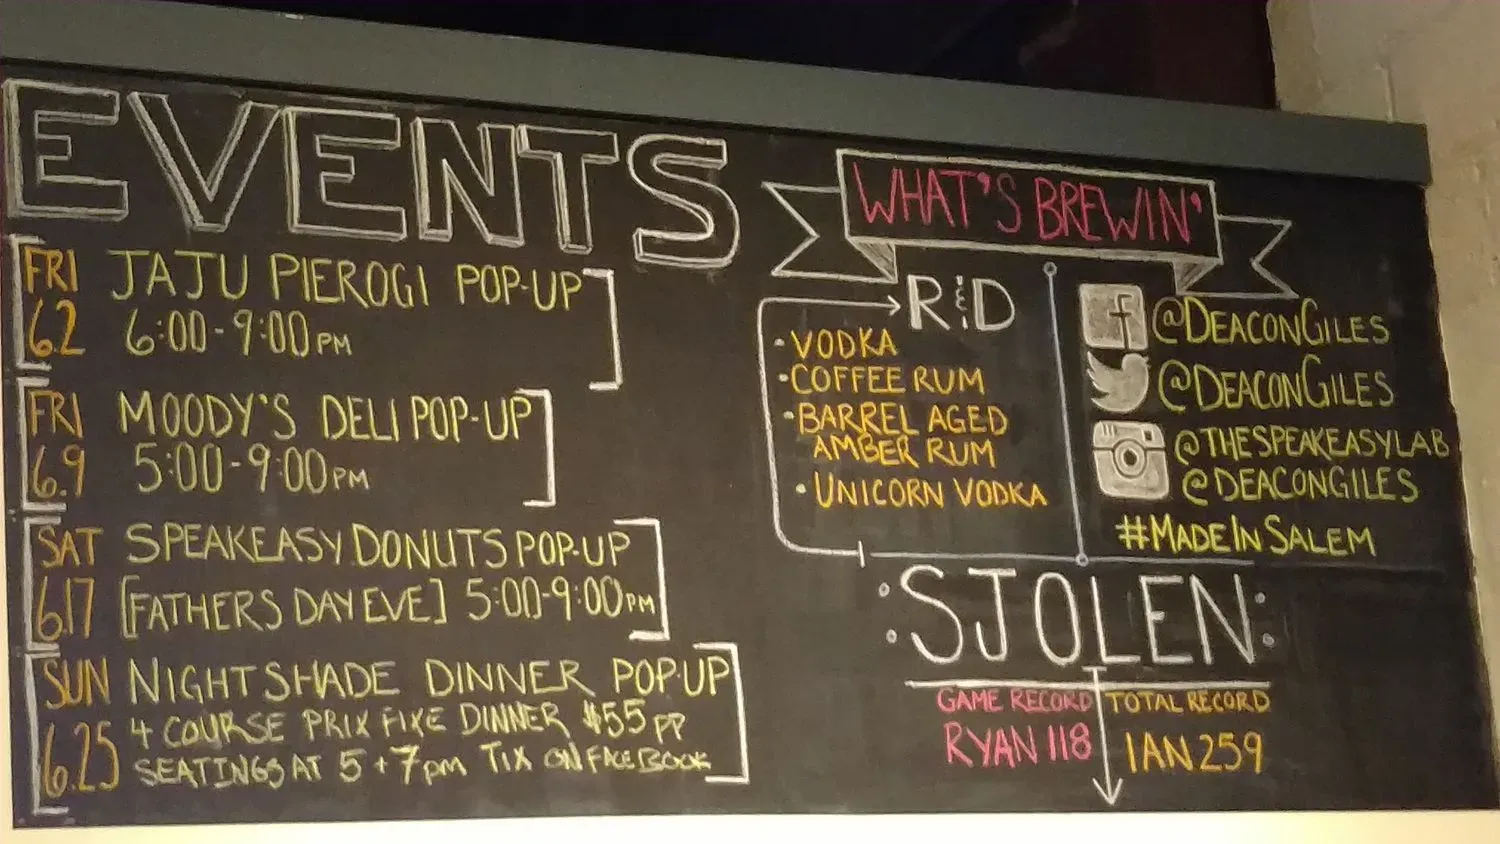 EVENTS
FRI
6.2
JAJU PIEROGI POP-UP
6:00-9:00PM
FRI
6.9
MOODY'S DELI POP-UP
5:00-9:00PM
SAT
6.17
SPEAKEASY DONUTS POP-UP
[FATHERS DAY EVE] 5:00-9:00PM
SUN
6.25
NIGHTSHADE DINNER POP-UP
4 COURSE PRIX FIXE DINNER $55 PP
SEATINGS AT 5+7pm TIX ON FACEBOOK
WHAT'S BREWIN'
R&D
• VODKA
• COFFEE RUM
• BARREL AGED
AMBER RUM
• UNICORN VODKA
f @DEACONGILES
@DEACONGILES
@THESPEAKEASYLAB
@DEACONGILES
#MADEINSALEM
:SJOLEN:
GAME RECORD
RYAN 118
TOTAL RECORD
IAN 259